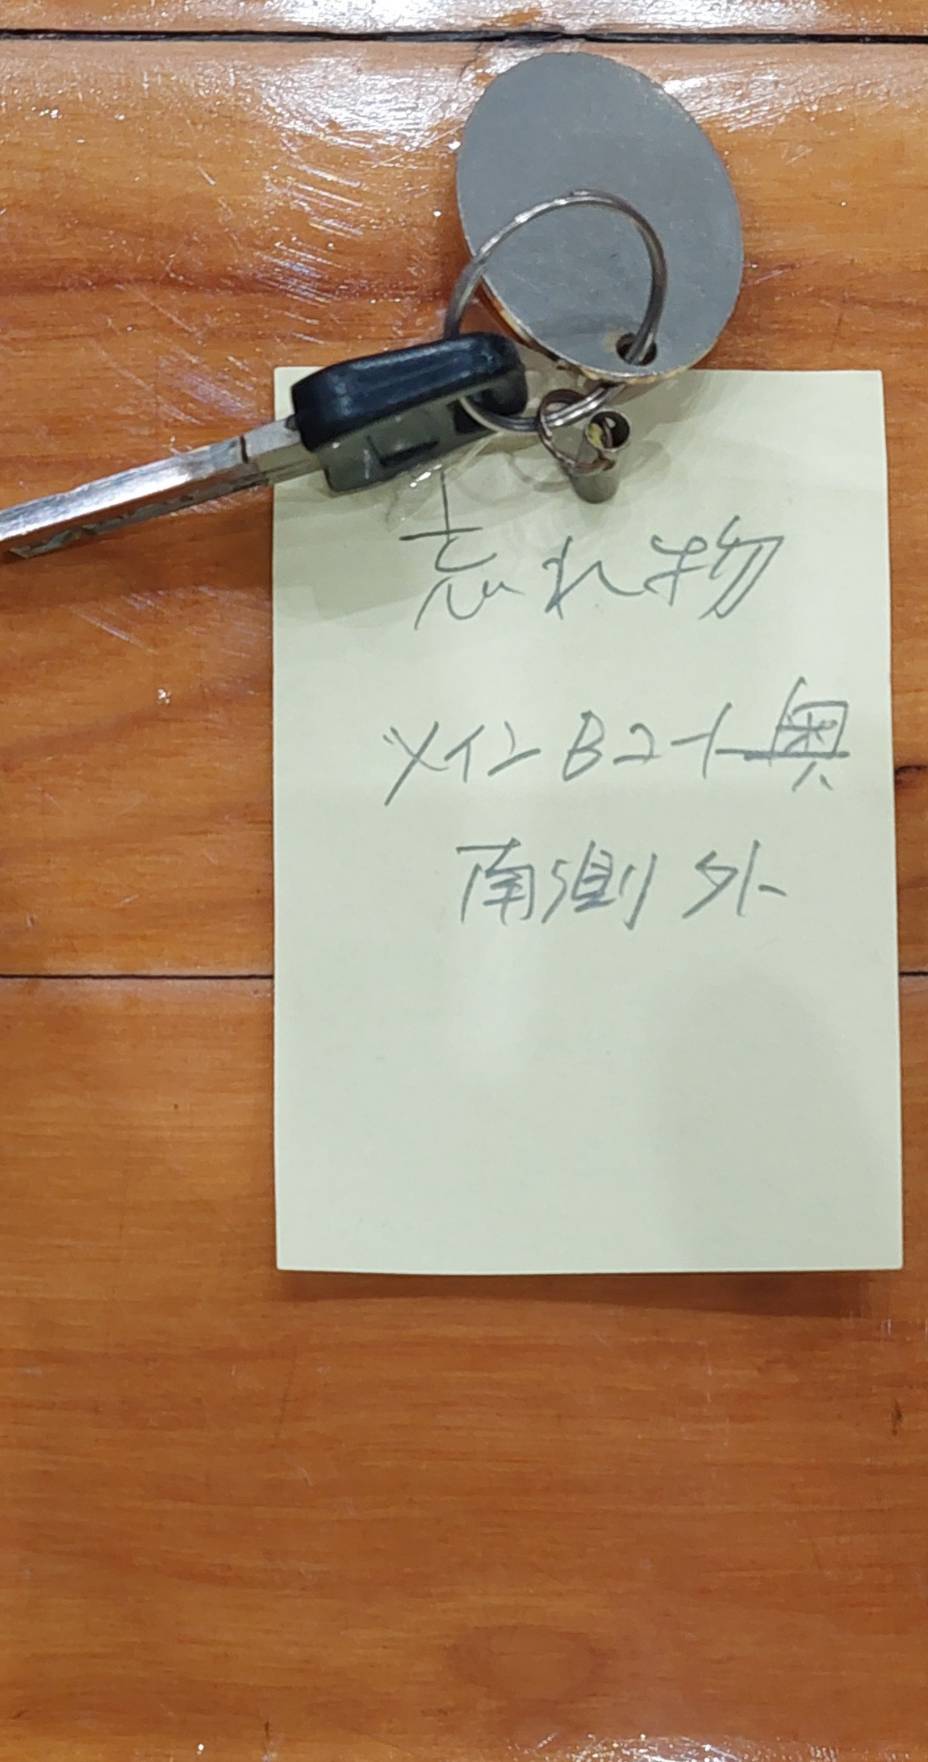 忘れ物
メインBコート奥
南側外